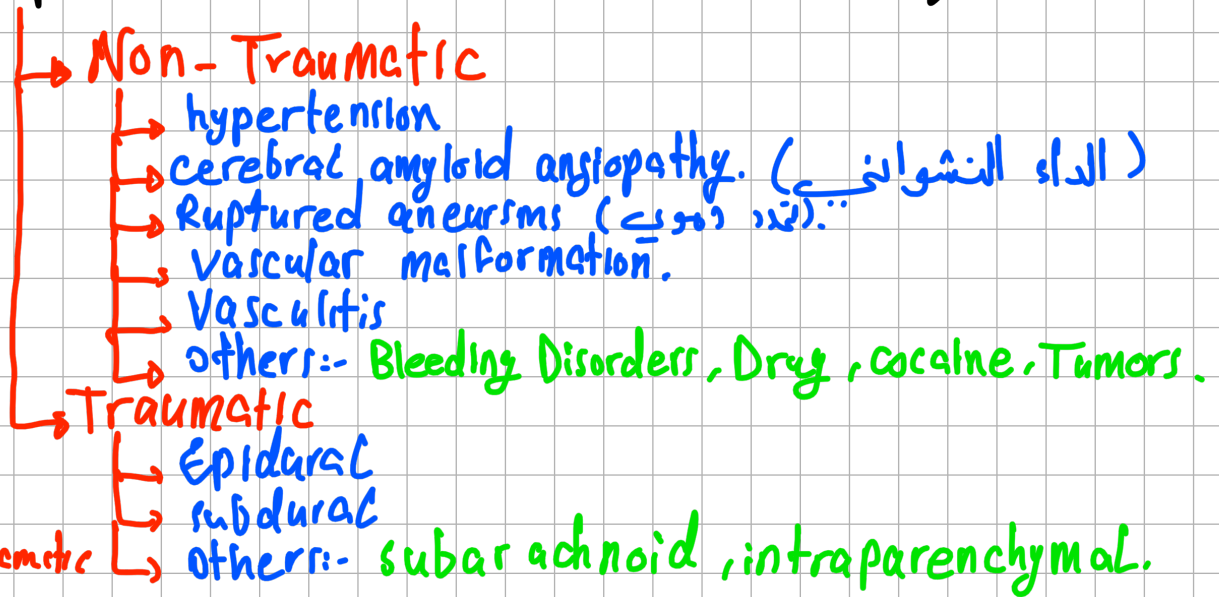 Non-Traumatic
hypertension
cerebral amyloid angiopathy. (الداء النشواني)
Ruptured aneursms (تمدد دموي).
vascular malformation.
Vasculitis
others:- Bleeding Disorders, Drug, cocaine, Tumors.
Traumatic
Epidural
subdural
others:- subarachnoid, intraparenchymal.